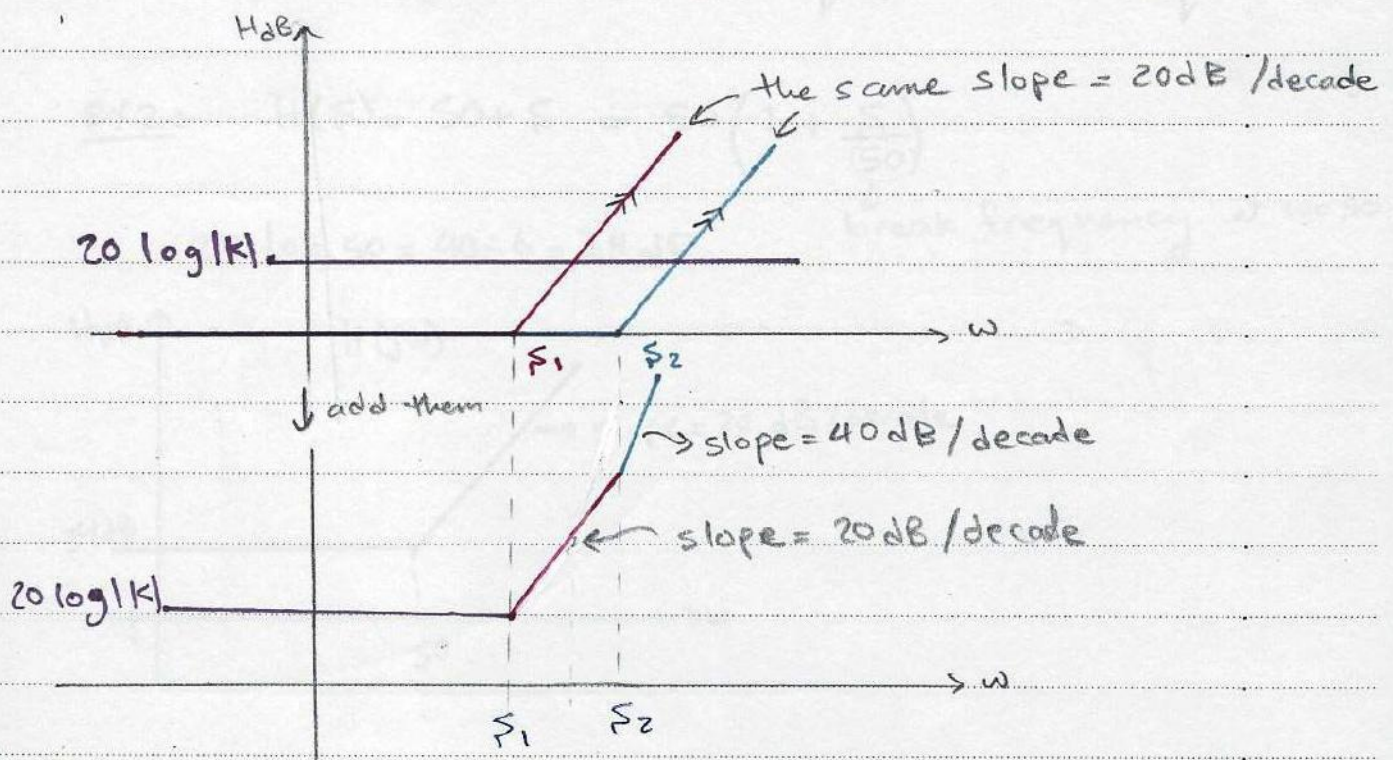 HdB
the same slope = 20dB /decade
20 log|K|
ω
S1 S2
add them
slope = 40dB/decade
slope = 20dB/decade
20 log|K|
ω
S1 S2